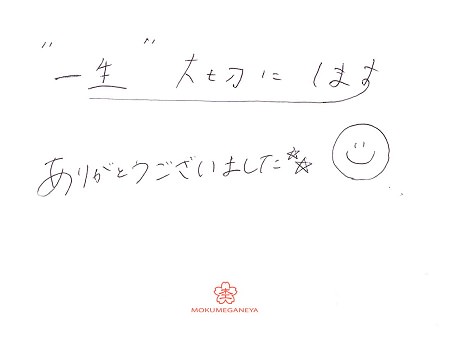 "一生" 大切に します
ありがとうございました☆☆
MOKUMEGANEYA